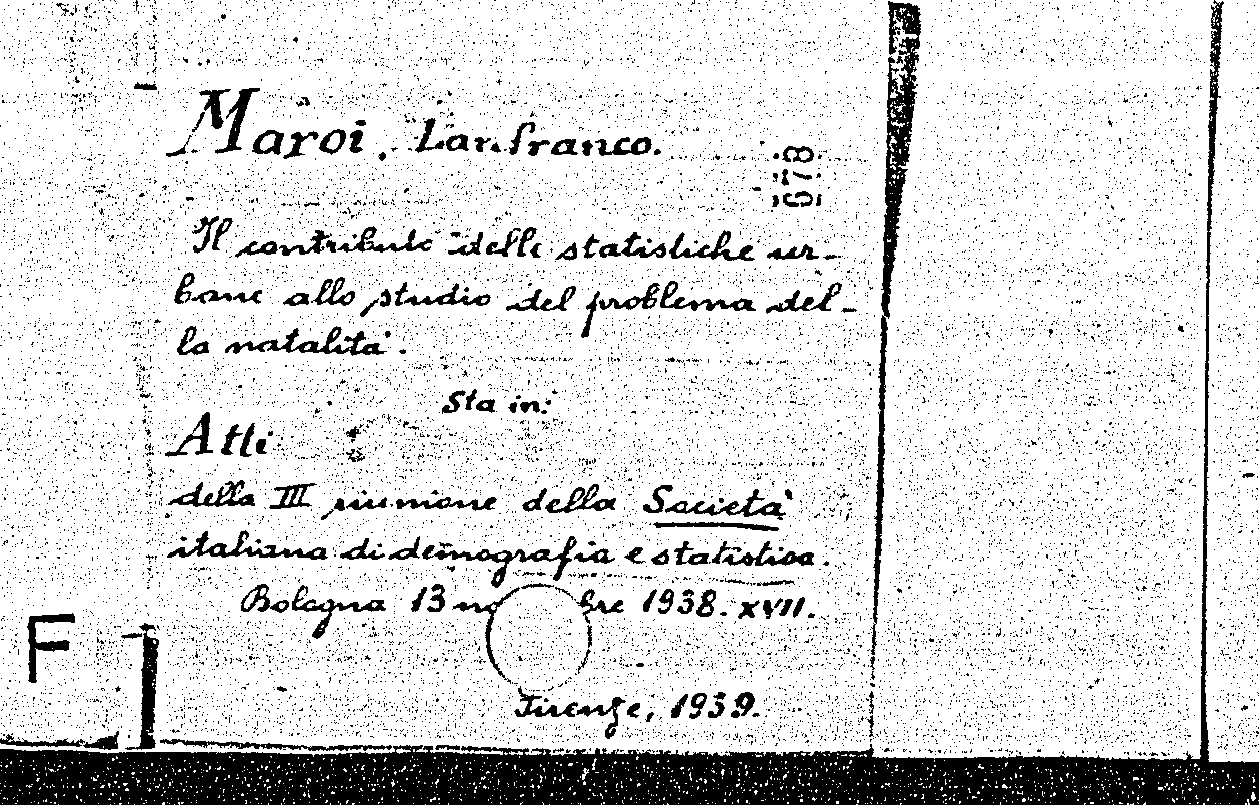 Maroi, Lanfranco.
5178
Il contributo delle statistiche ur-
bane allo studio del problema del-
la natalità.
Sta in:
Atti
della III riunione della Società
italiana di demografia e statistica.
Bologna 13 no bre 1938. XVII.
F
Firenze, 1939.